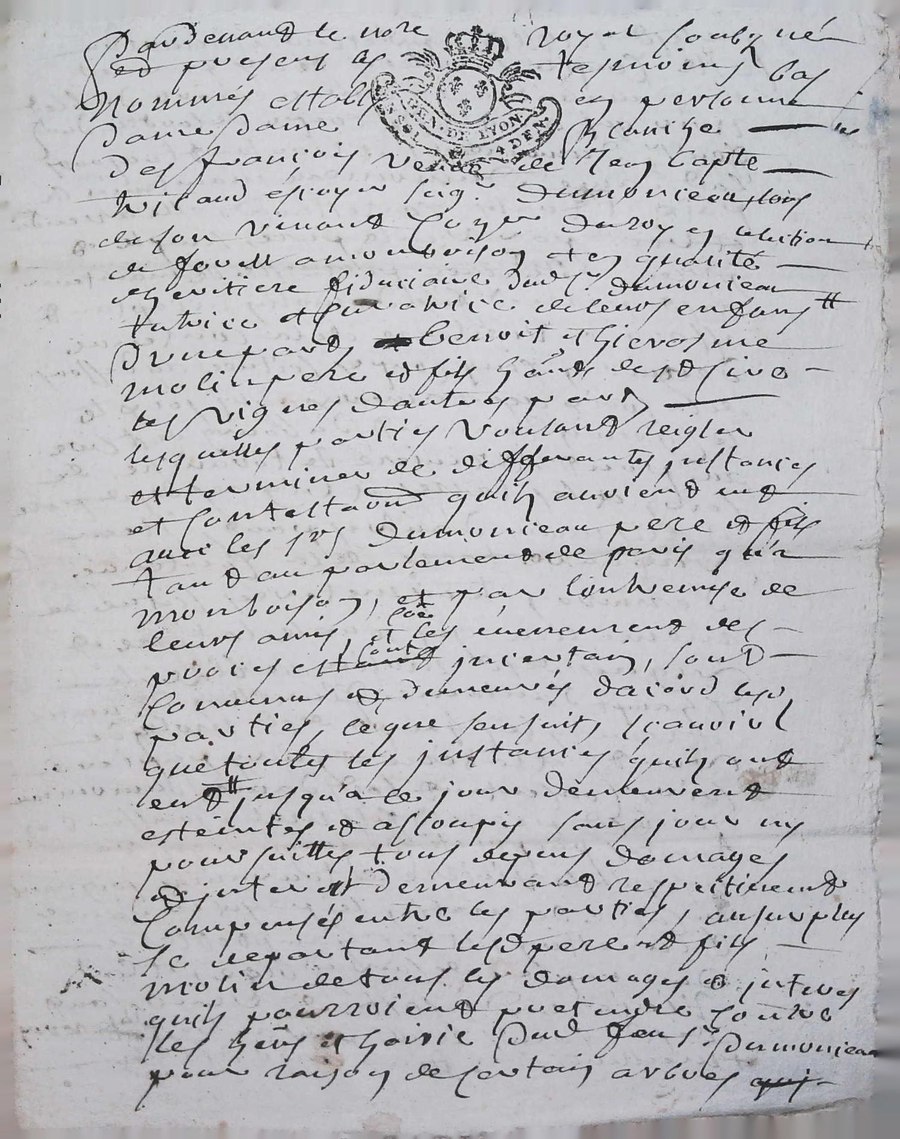 Pardevant le nore royal soubzne
et presens les tesmoins bas
nommés establ en personne
Dame Dame Blanche
GEN. DE LYON.
4 DEN.
Des françois veuve de Jean Capte
escuyer seigr Dumonceau, lors
de son vivant du roy en
de Montbrison et en qualité
d'heritiere fiduciaire dudt sr Dumonceau
tutrice et curatrice de leurs enfans
D'une part, Benoit et hierosme
molin pere et fils hants de St Sire
les Vignes d'autre part,
lesquelles parties voulant reigler
et terminer de differantes instances
et contestaons quils avoient eues
avec les srs Dumonceau pere et fils
tant au parlement de paris qu'a
Montbrison, et par l'entremise de
leurs amis, et les évenement des
proces estant incertain, sont
convenus et demeurés d'acord les
parties, ce que sensuit, sçavoir
que toutes les instances quils ont
eu jusqu'a ce jour demeurent
esteintes et assoupis sans jour ny
poursuittes tous depens domages
et interest demeurant respectivement
compensés entre les parties, au surplus
se departant lesd pere et fils
molin de tous les domages et interes
quils pourroient pretendre contre
les hers et hoirie dud feu sr Dumonceau
pour raison de certain arbres qui